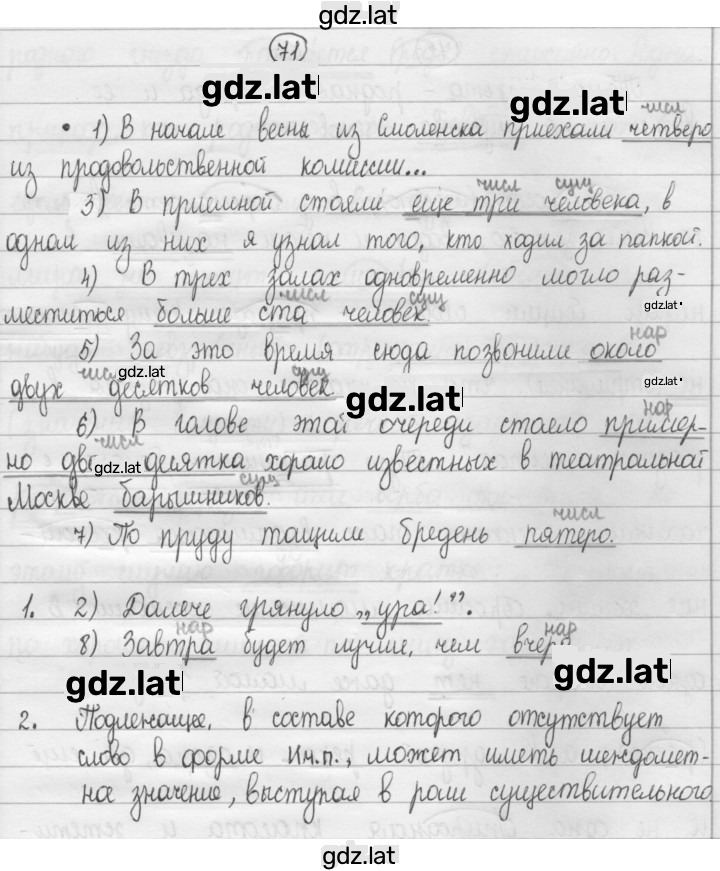 gdz.lat
71
gdz.lat
gdz.lat
числ
1) В начале весны из Смоленска приехали четверо
из продовольственной комиссии...
числ сущ
3) В приемной стояли еще три человека, в
одном из них я узнал того, кто ходил за папкой.
4) В трех залах одновременно могло раз-
gdz.lat
числ сущ
меститься больше ста человек
нар
5) За это время сюда позвонили около
gdz.lat
числ сущ
gdz.lat
двух десятков человек
gdz.lat
нар
6) В голове этой очереди стояло пример-
числ
но два десятка хорошо известных в театральной
gdz.lat
сущ
Москве барышников.
числ
7) По пруду тащили бредень пятеро.
1. 2) Далече грянуло „ура!”.
нар нар
8) Завтра будет лучше, чем вчера
gdz.lat
gdz.lat
2. Подлежащее, в составе которого отсутствует
слово в форме Им.п., может иметь междомет-
ное значение, выступая в роли существительного
gdz.lat